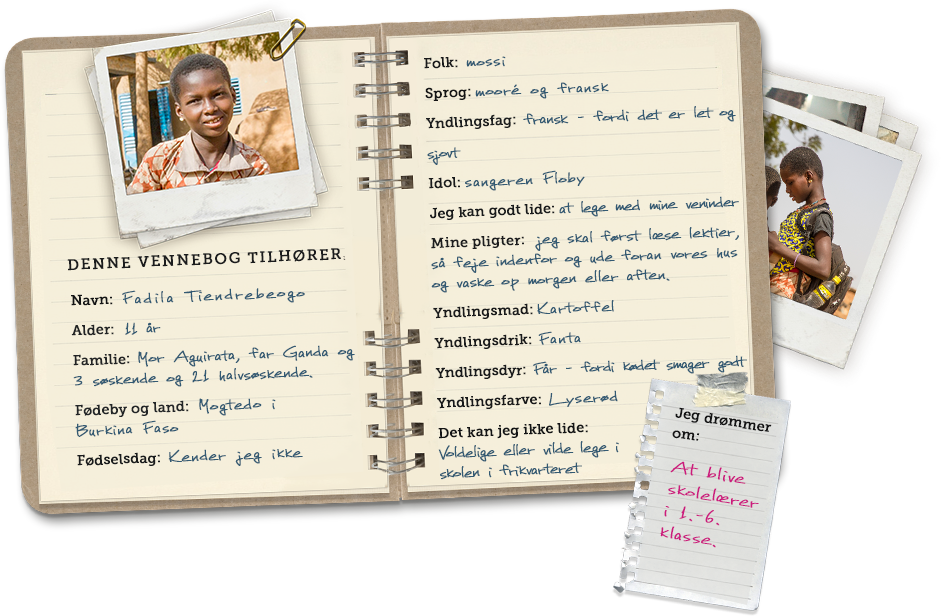 DENNE VENNEBOG TILHØRER:
Navn: Fadila Tiendrebeogo
Alder: 11 år
Familie: Mor Aguirata, far Ganda og
3 søskende og 21 halvsøskende.
Fødeby og land: Mogtedo i
Burkina Faso
Fødselsdag: Kender jeg ikke
Folk: mossi
Sprog: mooré og fransk
Yndlingsfag: fransk - fordi det er let og
sjovt
Idol: sangeren Floby
Jeg kan godt lide: at lege med mine veninder
Mine pligter: jeg skal først læse lektier,
så feje indenfor og ude foran vores hus
og vaske op morgen eller aften.
Yndlingsmad: Kartoffel
Yndlingsdrik: Fanta
Yndlingsdyr: Får - fordi kødet smager godt
Yndlingsfarve: Lyserød
Det kan jeg ikke lide:
Voldelige eller vilde lege i
skolen i frikvarteret
Jeg drømmer
om:
At blive
skolelærer
i 1.-6.
klasse.